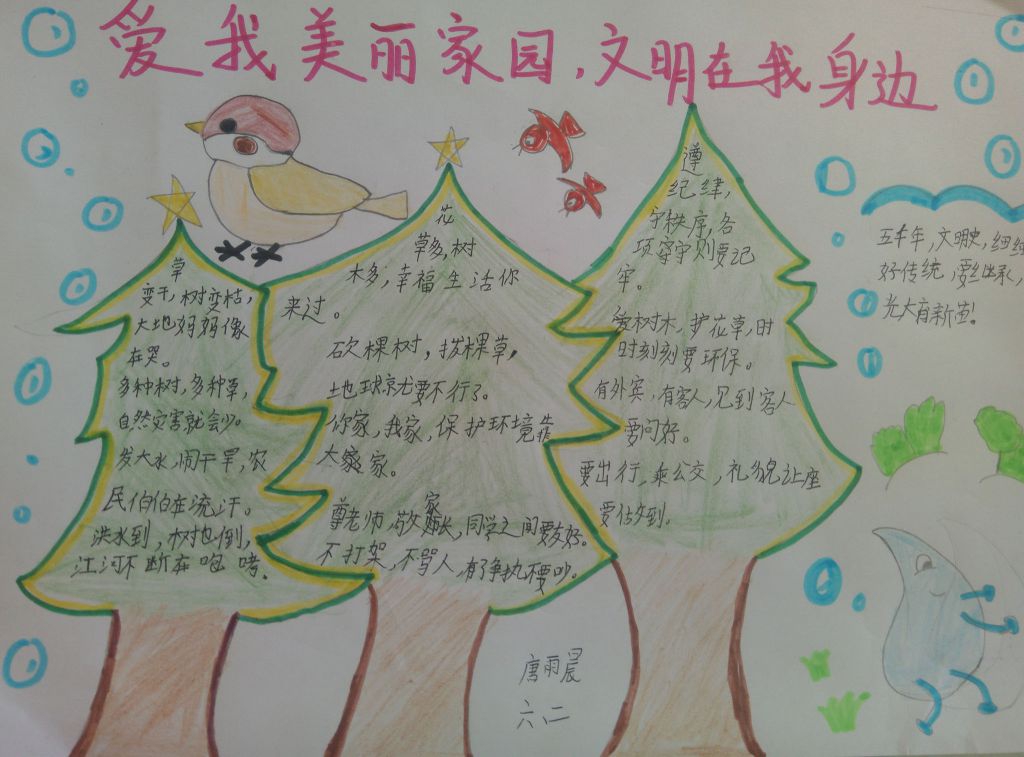 爱我美丽家园,文明在我身边
草
变干,树变枯,
大地妈妈像
在哭。
多种树,多种草,
自然灾害就会少。
发大水,闹干旱,农
民伯伯在流汗。
洪水到,树也倒,
江河不断在咆哮.
花
草多,树
木多,幸福生活你
来过。
砍棵树,拔棵草,
地球就要不行了。
你家,我家,保护环境靠
大家。
尊老师,敬家长,同学之间要友好。
不打架,不骂人,有了争执不要吵。
遵
纪律,
守秩序,各
项守则要记
牢。
爱树木,护花草,时
时刻刻要环保。
有外宾,有客人,见到客人
要问好。
要出行,乘公交,礼貌让座
要做到.
五千年,文明史,细
好传统,要继承,
光大有新
唐雨晨
六二